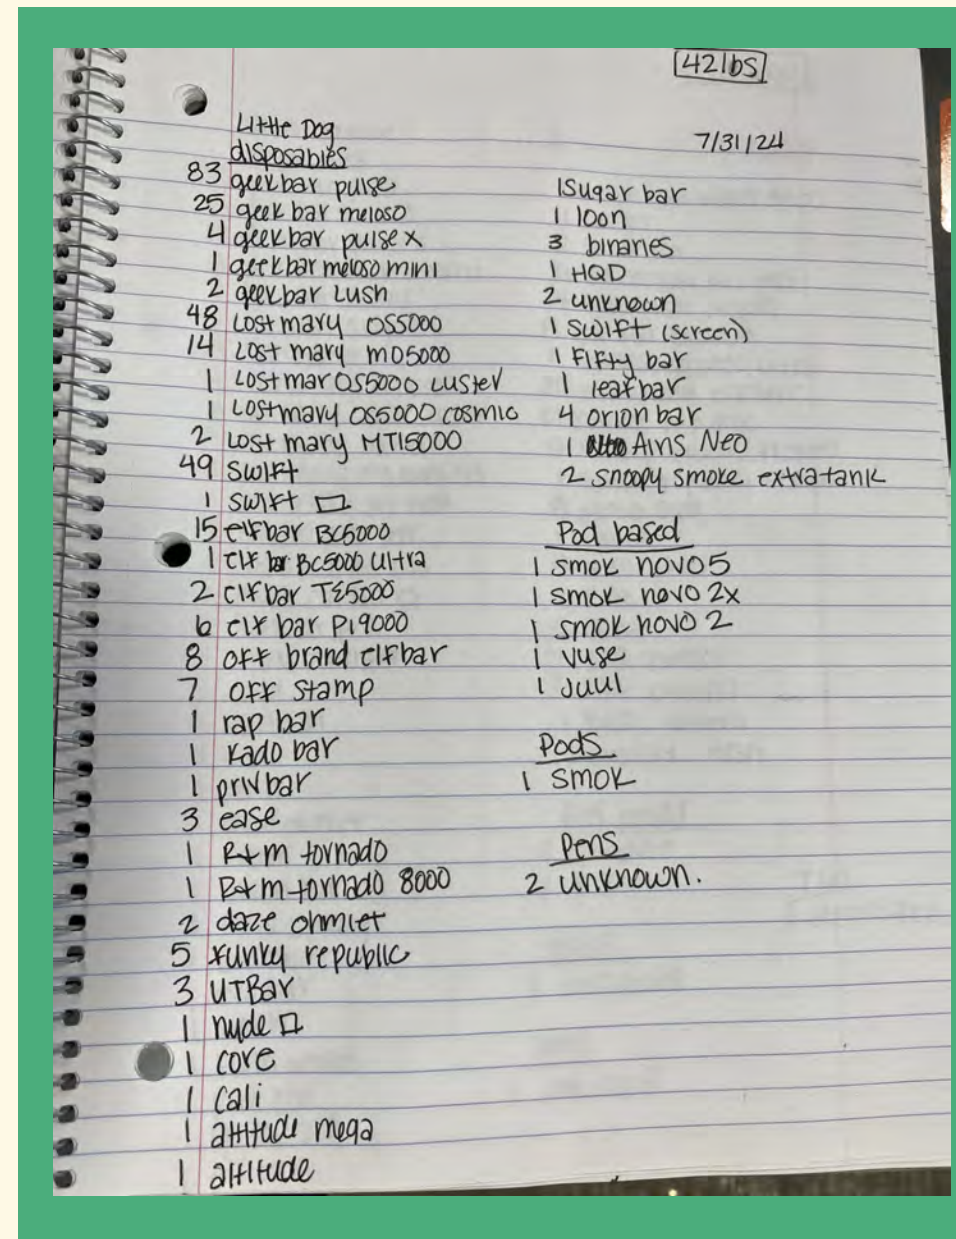 42lbs
Little Dog
7/31/24
disposables
83 geekbar pulse
25 geek bar meloso
4 geekbar pulse x
1 geekbar meloso mini
2 geekbar Lush
48 Lost mary OS5000
14 Lost mary MO5000
1 Lost mar OS5000 Luster
1 Lostmary OS5000 cosmic
2 Lost mary MT15000
49 swift
1 swift
15 elfbar BC5000
1 elf bar BC5000 Ultra
2 elfbar TE5000
6 elf bar Pi9000
8 off brand elfbar
7 off stamp
1 rap bar
1 Kado bar
1 privbar
3 ease
1 R+m tornado
1 R+m tornado 8000
2 daze ohmlet
5 funky republic
3 UTBar
1 nyde
1 core
1 Cali
1 attitude mega
1 altitude
1 Sugar bar
1 loon
3 binaries
1 HQD
2 unknown
1 swift (screen)
1 Fifty bar
1 leaf bar
4 orion bar
1 Aims Neo
2 snoopy smoke extra tank
Pod based
1 smok novo 5
1 smok novo 2x
1 smok novo 2
1 vuse
1 Juul
Pods
1 smok
Pens
2 unknown.